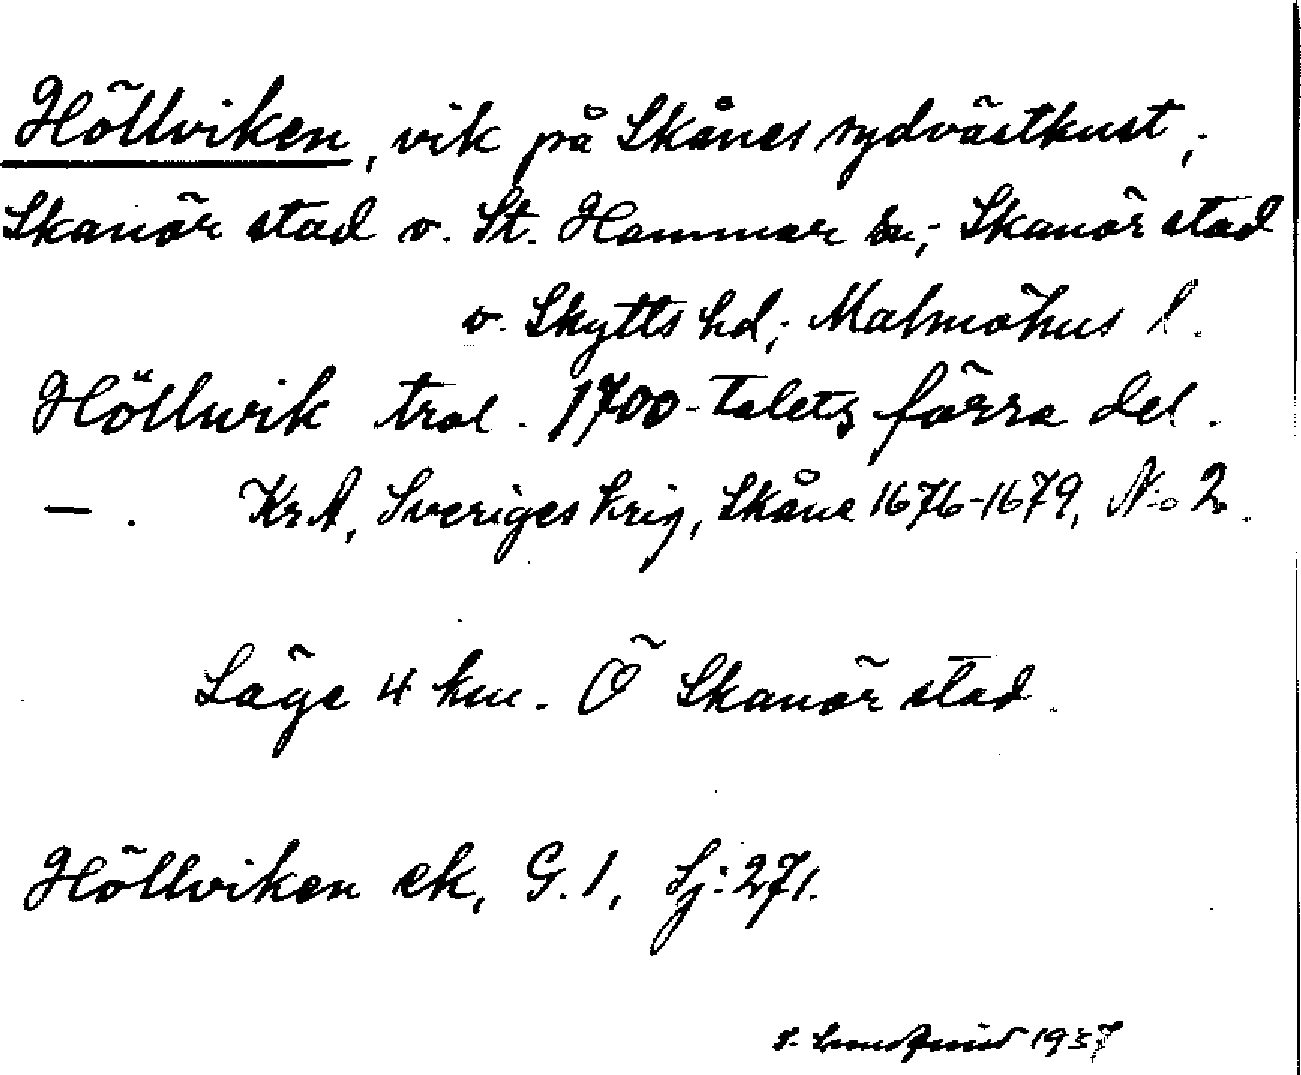 Höllviken, vik på Skånes sydvästkust,;
Skanör stad o. St. Hammar sn,; Skanör stad
o. Skytts hd,; Malmöhus l.
Höllwik trol. 1700-talets förra del.
— . KrA, Sveriges krig, Skåne 1676-1679, No 2.
Läge 4 km. Ö Skanör stad.
Höllviken ek, G.1, Lj:271.
Lundquist 1937